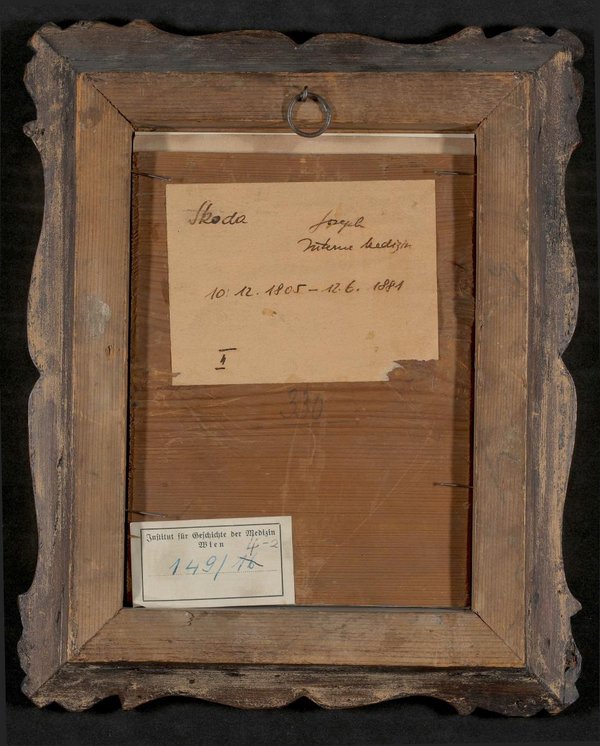 Skoda Joseph
Interne Medizin
10. 12. 1805 – 12. 6. 1881
330
Institut für Geschichte der Medizin
Wien 4-2
149/